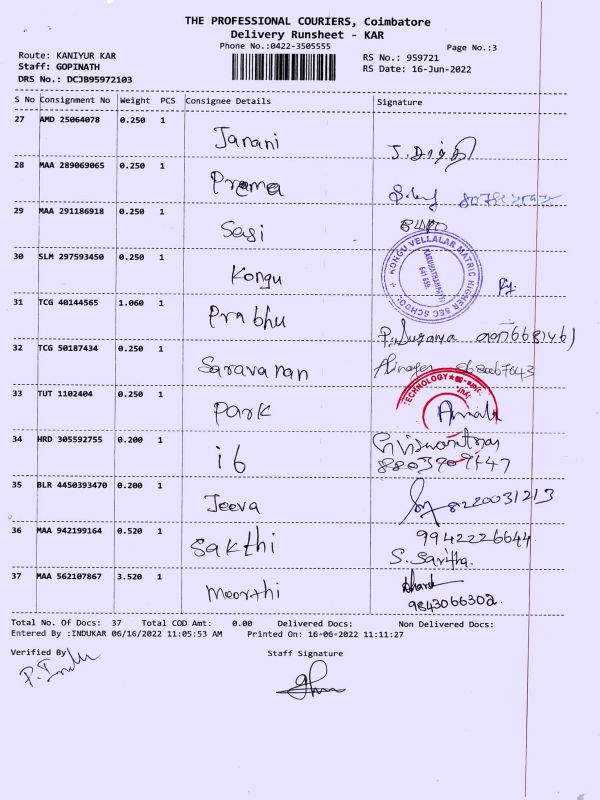 THE PROFESSIONAL COURIERS, Coimbatore
Delivery Runsheet - KAR
Phone No.:0422-3505555
Page No.:3
Route: KANIYUR KAR
RS No.: 959721
Staff: GOPINATH
RS Date: 16-Jun-2022
DRS No.: DCJB95972103
S No Consignment No Weight PCS Consignee Details Signature
27 AMD 25064078 0.250 1 Janani
28 MAA 289069065 0.250 1 Prema
29 MAA 291186918 0.250 1 Sasi
30 SLM 297593450 0.250 1 Kongu
KONGU VELLALAR MATRIC HIGHER SEC SCHOOL
31 TCG 40144565 1.060 1 Prabhu
32 TCG 50187434 0.250 1 Saravanan
33 TUT 1102404 0.250 1 Park
TECHNOLOGY
34 HRD 305592755 0.200 1 i6
35 BLR 4450393470 0.200 1 Jeeva 8220031213
36 MAA 942199164 0.520 1 Sakthi 9942226644
S. Saritha.
37 MAA 562107867 3.520 1 Moorthi
9843066302
Total No. Of Docs: 37 Total COD Amt: 0.00 Delivered Docs: Non Delivered Docs:
Entered By :INDUKAR 06/16/2022 11:05:53 AM Printed On: 16-06-2022 11:11:27
Verified By Staff Signature
P. Indu